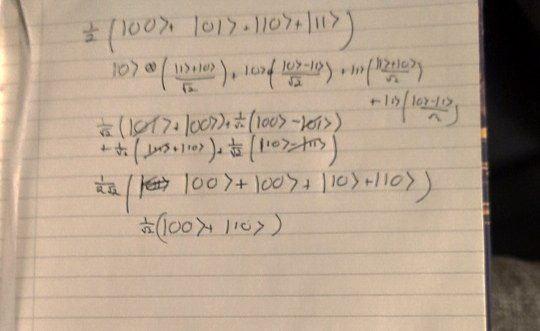 1/2 (|00> + |01> + |10> + |11>)
|0> ⊗ (|1>+|0>/√2) + |0>(|0>-|1>/√2) + |1>(|1>+|0>/√2)
+ |1>(|0>-|1>/√2)
1/√2 (|01> + |00>) + 1/√2 (|00> - |01>)
+ 1/√2 (|11> + |10>) + 1/√2 (|10> - |11>)
1/2√2 ( |00> + |00> + |10> + |10>)
1/√2 (|00> + |10>)